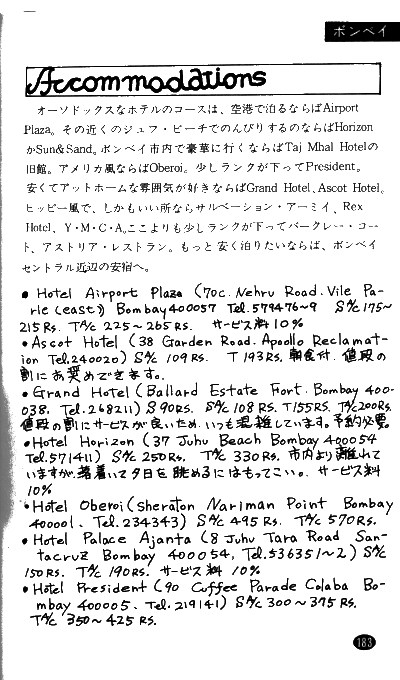 ボンベイ
Accommodations
オーソドックスなホテルのコースは、空港で泊るならばAirport
Plaza。その近くのジュフ・ビーチでのんびりするのならばHorizon
かSun&Sand。ボンベイ市内で豪華に行くならばTaj Mhal Hotelの
旧館。アメリカ風ならばOberoi。少しランクが下ってPresident。
安くてアットホームな雰囲気が好きならばGrand Hotel、Ascot Hotel。
ヒッピー風で、しかもいい所ならサルベーション・アーミイ、Rex
Hotel、Y・M・C・A。ここよりも少しランクが下ってバークレー・コー
ト、アストリア・レストラン。もっと安く泊りたいならば、ボンベイ
セントラル近辺の安宿へ。
• Hotel Airport Plaza (70c. Nehru Road. Vile Pa-
rle (east)) Bombay 400057 Tel. 579476~9 S%c 175~
215Rs. T%c 225~265Rs. サービス料10%
• Ascot Hotel (38 Garden Road. Apollo Reclamat-
ion Tel. 240020) S%c 109Rs. T 193Rs. 朝食付. 値段の
割にお奨めできます。
• Grand Hotel (Ballard Estate Fort. Bombay 400-
038. Tel. 268211) S 90Rs. S%c 108Rs. T155Rs. T%c 200Rs.
値段の割にサービスが良いため、いつも混雑しています。予約必要。
• Hotel Horizon (37 Juhu Beach Bombay 400054
Tel. 571411) S%c 250Rs. T%c 330Rs. 市内より離れて
いますが、落着いて夕日を眺めるにはもってこい。サービス料
10%
• Hotel Oberoi (sheraton Nariman Point Bombay
400001、Tel. 234343) S%c 495Rs. T%c 570Rs.
• Hotel Palace Ajanta (8 Juhu Tara Road San-
tacruz Bombay 400054, Tel. 536351~2) S%c
150Rs. T%c 190Rs. サービス料 10%
• Hotel President (90 Cuffee Parade Colaba Bo-
mbay 400005、Tel. 219141) S%c 300~375Rs.
T%c 350~425Rs.
183